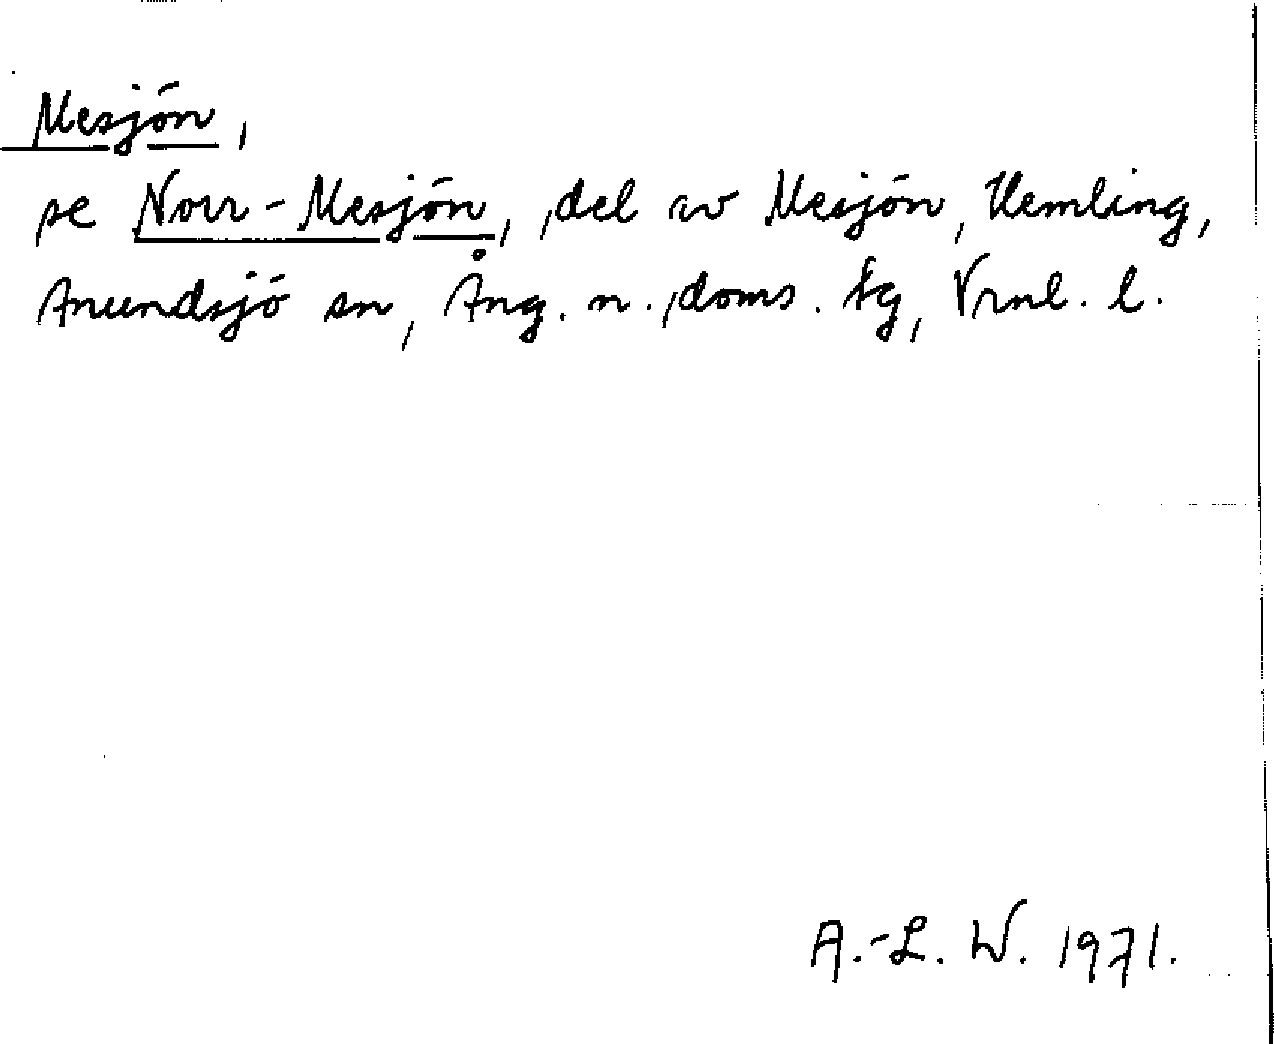 Mesjön,
se Norr-Mesjön, del av Mesjön, Kemling,
Anundsjö sn, Ång. n. doms. tg, Vrnl. l.
A.-L. W. 1971.